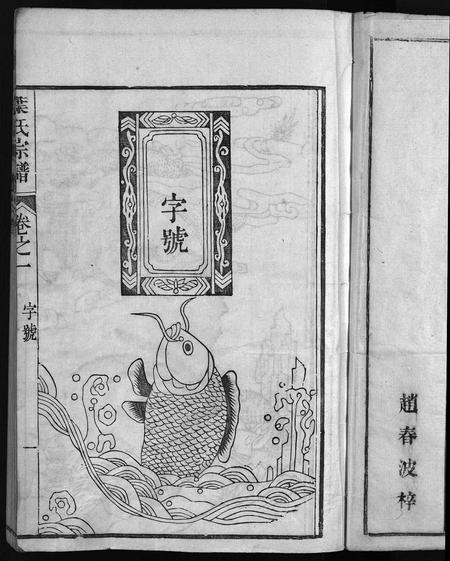 趙春波梓
字號
葉氏宗譜
卷之一
字號
一